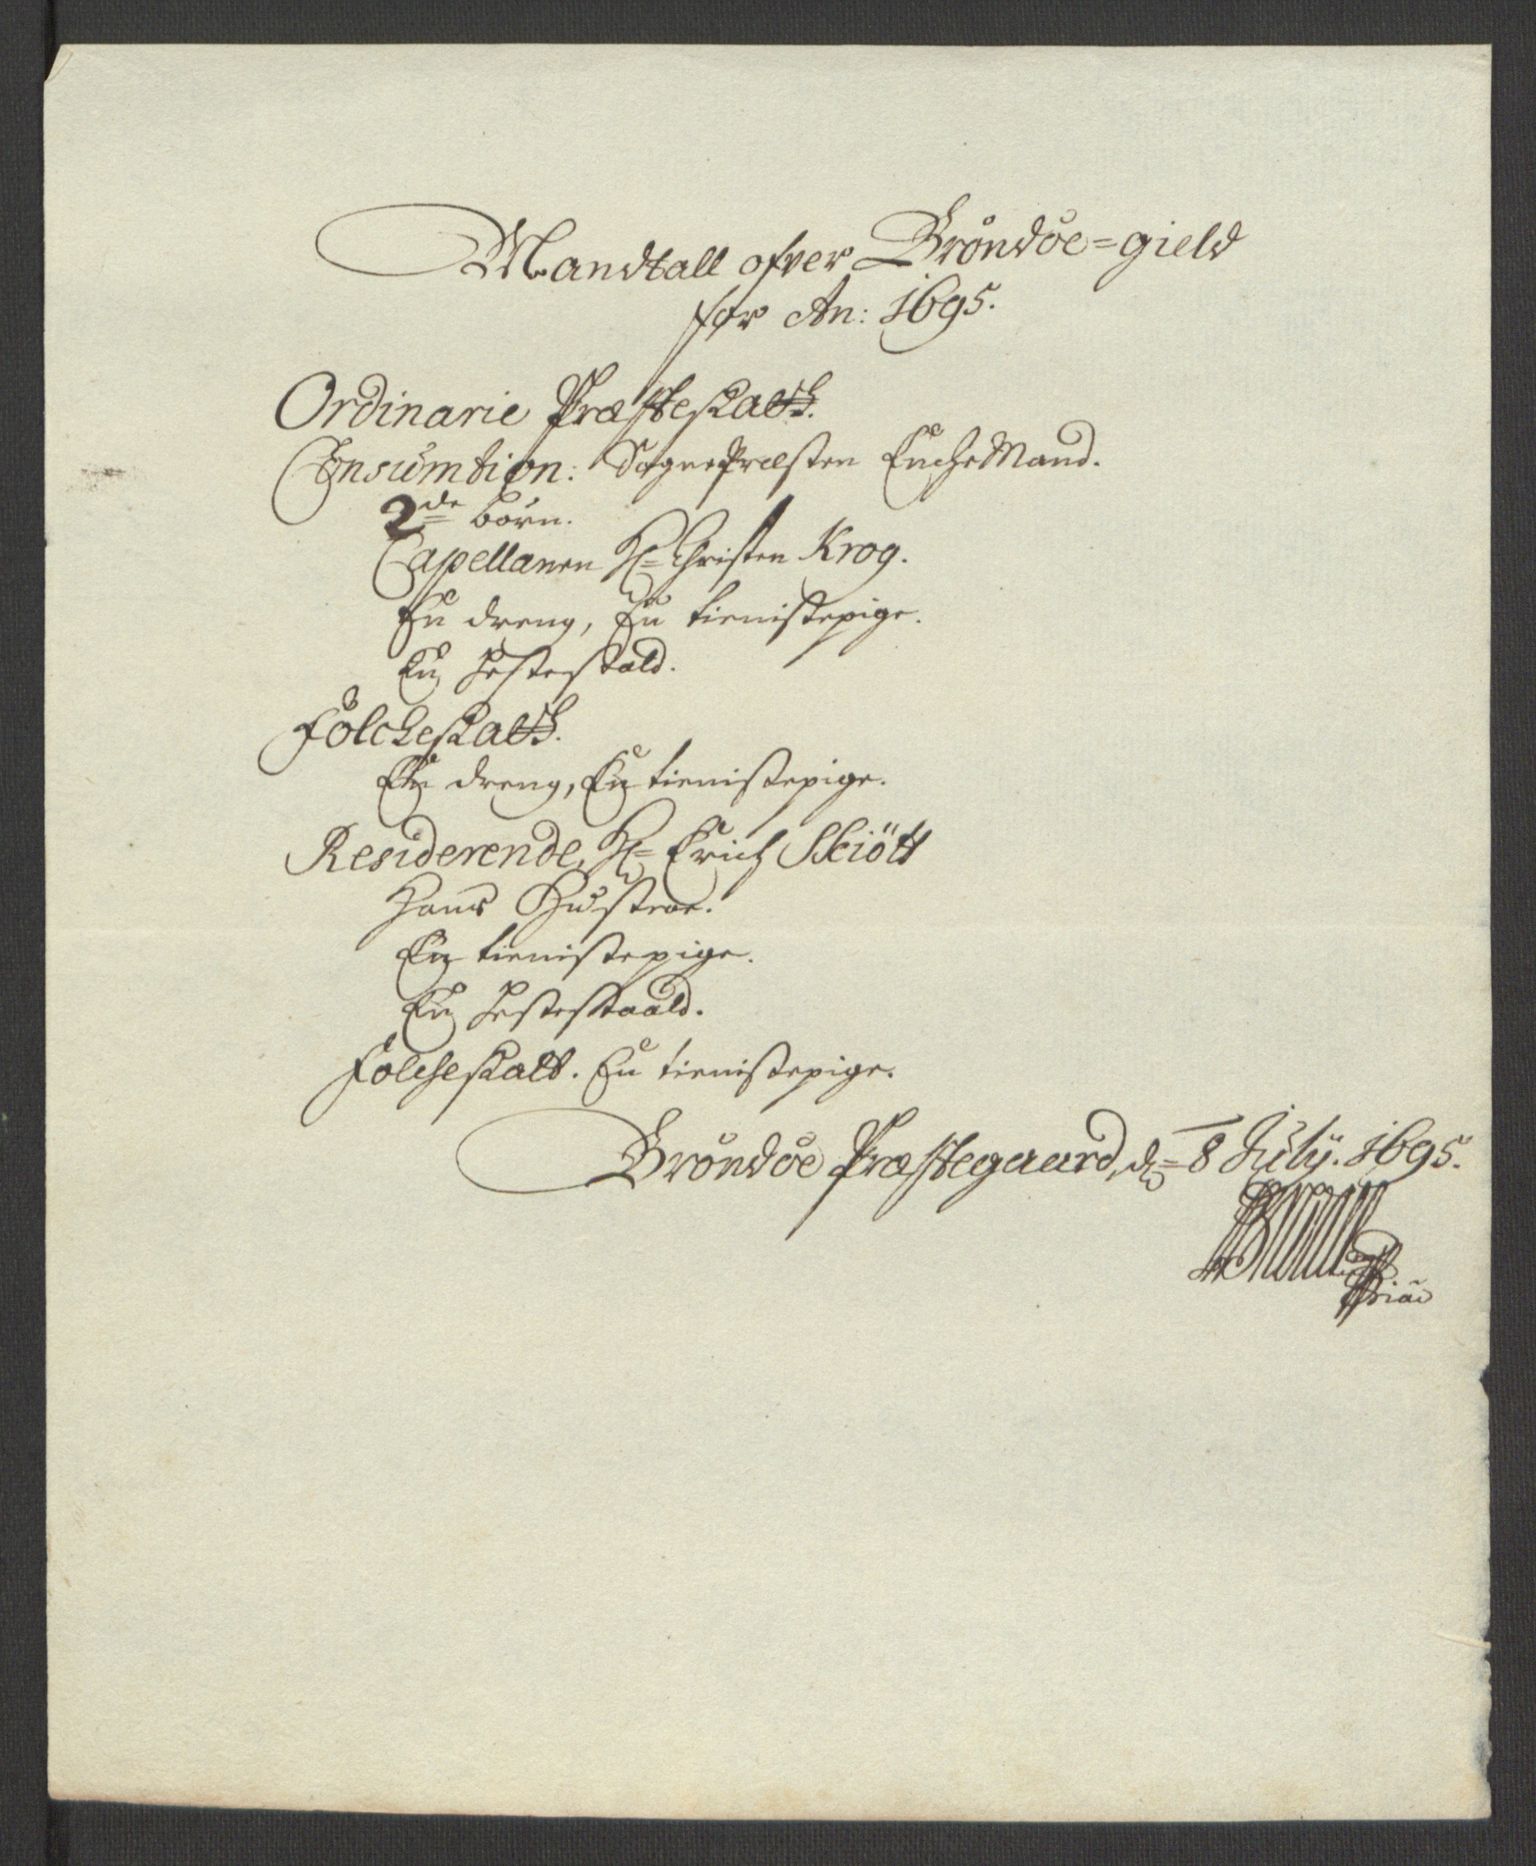 Mandtall ofver Bröndöe=gield
for An: 1695.
Ordinarie Præsteskatt.
Consumtion: SognePræsten EncheMand.
2de börn.
Capellanen H= Christen Krog.
En dreng, En tienistepige.
En Hestestald.
Folcheskatt.
En dreng, En tienistepige.
Residerende, H= Erich Skiött
Hans Hustroe.
En tienistepige.
En Hestestaald.
Folcheskatt. En tienistepige.
Bröndöe Præstegaard, d= 8 July. 1695.